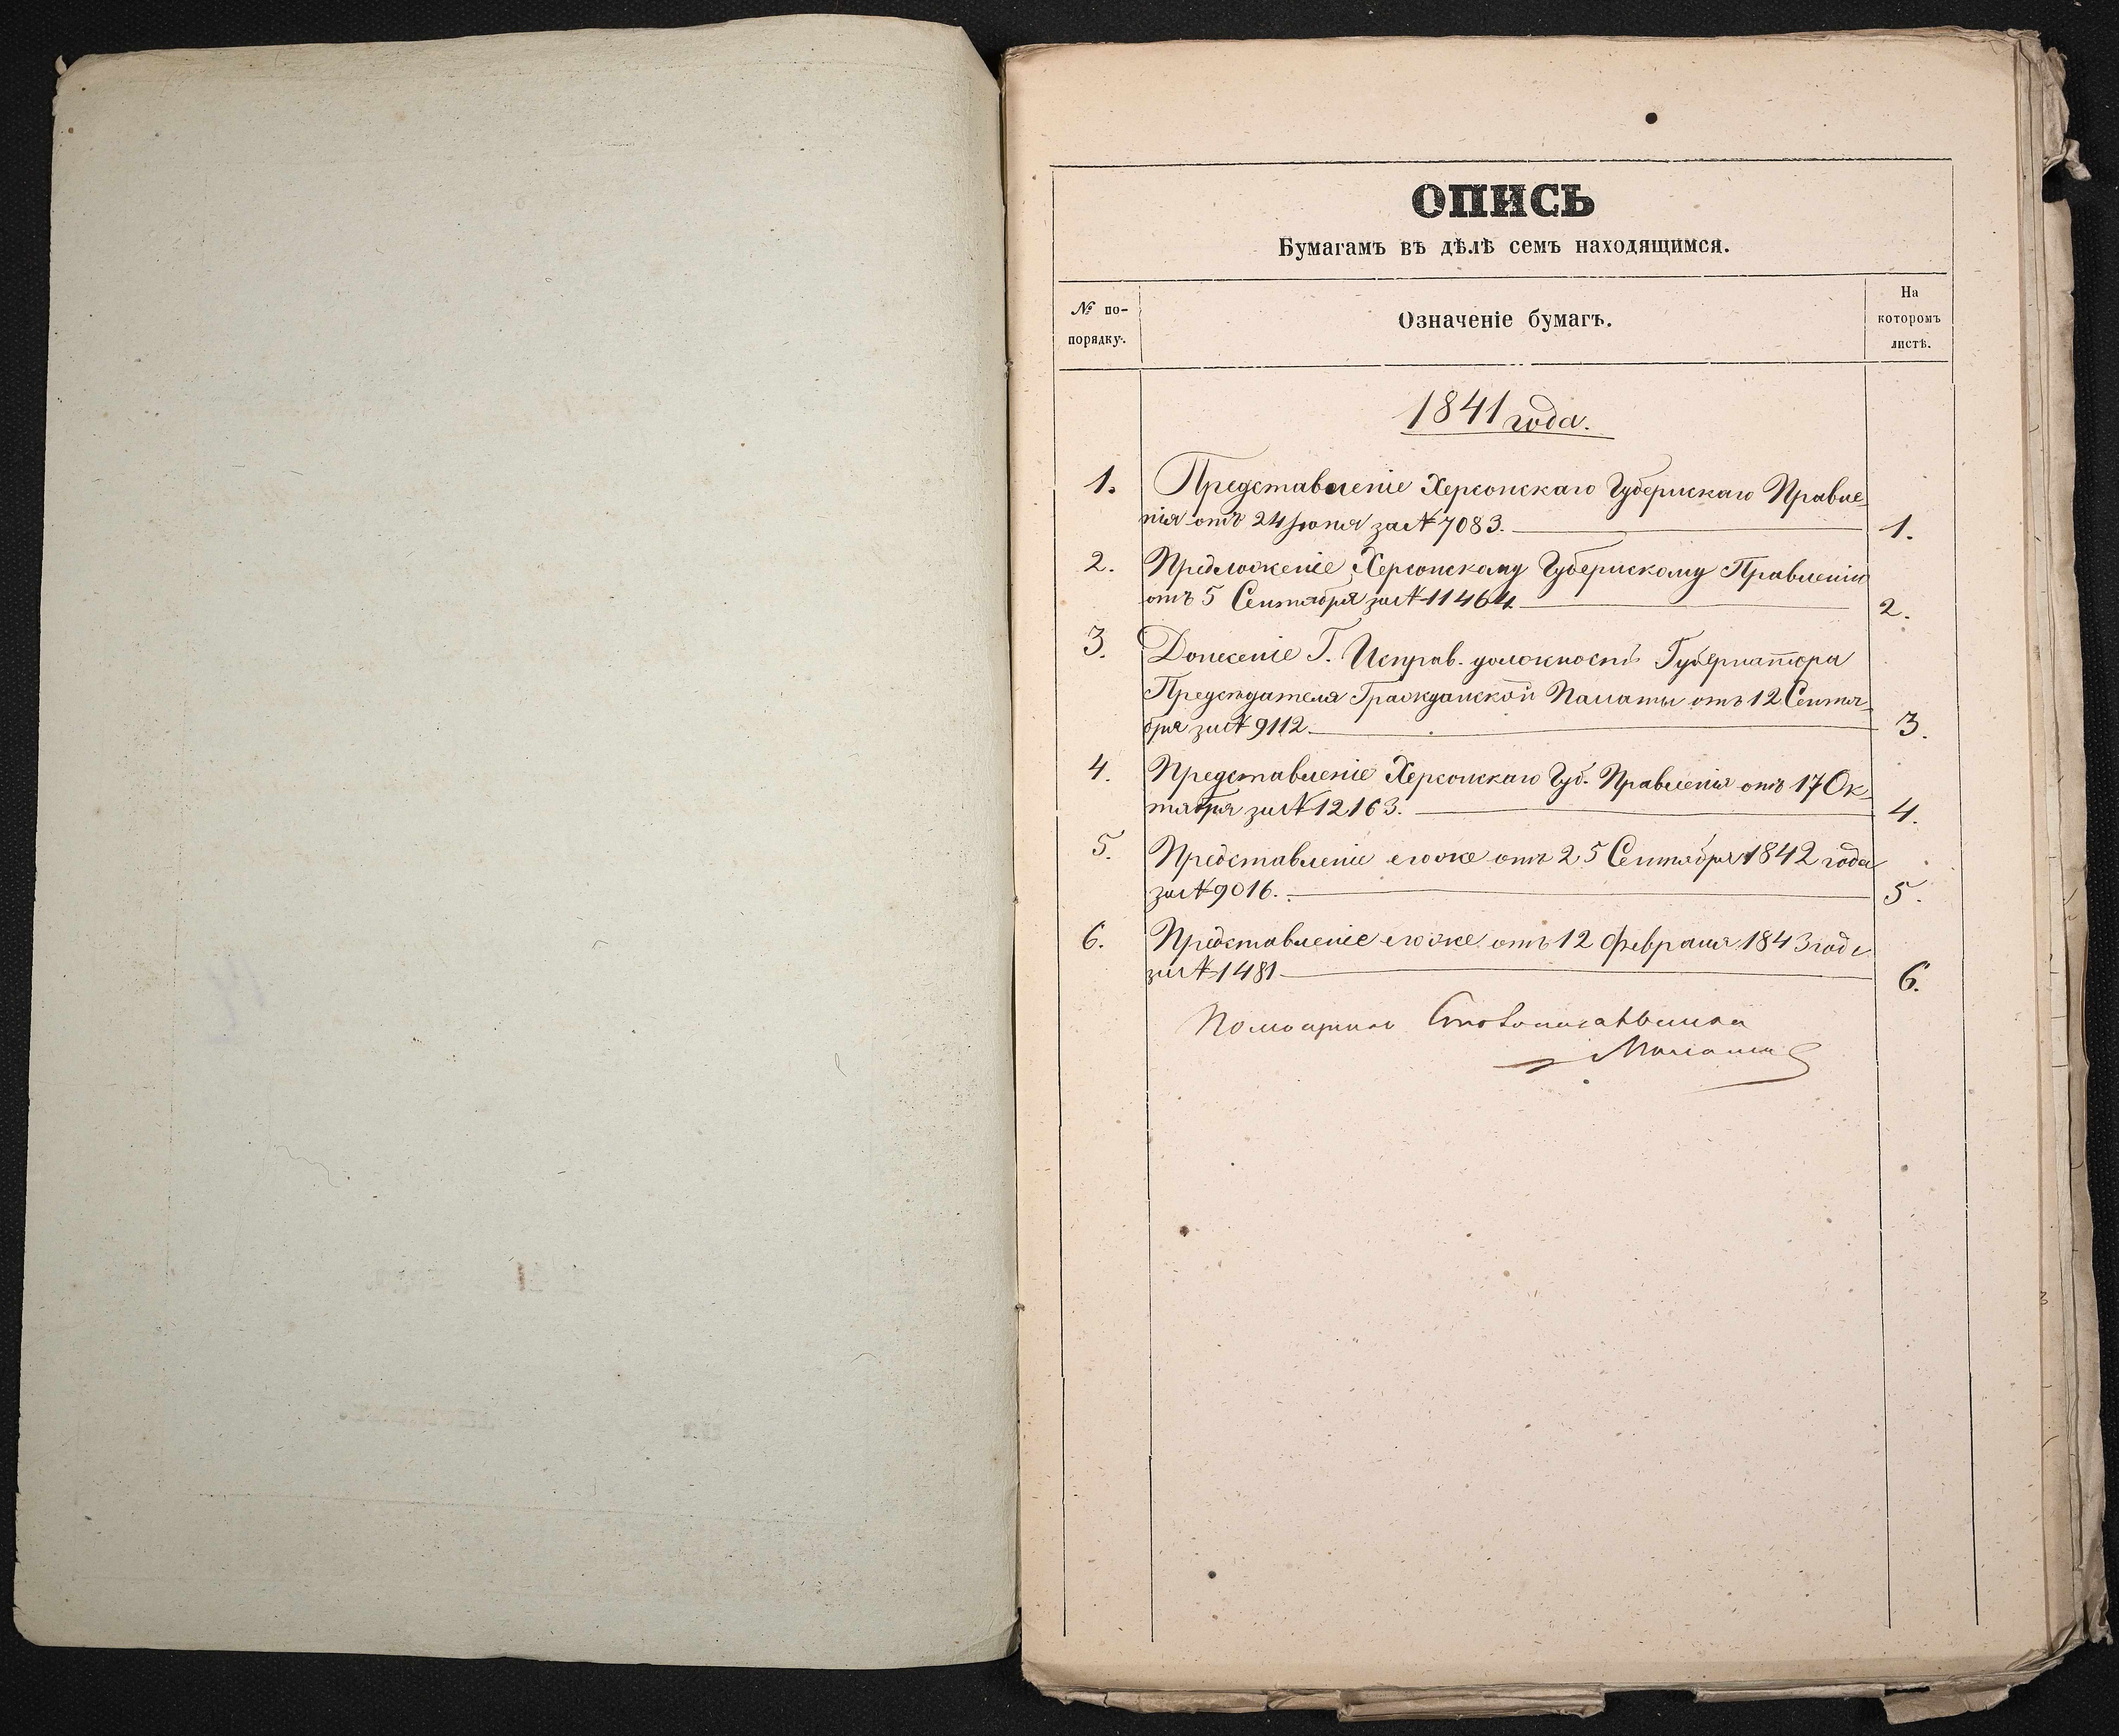 ОПИСЬ
Бумагамъ въ дѣлѣ семъ находящимся.
№ по-
порядку.
Означеніе бумагъ.
На
которомъ
листѣ.
1841 года.
1. Представленіе Херсонскаго Губернскаго Правле-
нія отъ 24 Іюня за № 7083. 1.
2. Предложеніе Херсонскому Губернскому Правленію
отъ 5 Сентября за № 11464. 2.
3. Донесеніе Г. Исправ. должность Губернатора
Предсѣдателя Гражданской Палаты отъ 12 Сентя-
бря за № 9112. 3.
4. Представленіе Херсонскаго Губ. Правленія отъ 17 Ок-
тября за № 12163. 4.
5. Представленіе егоже отъ 25 Сентября 1842 года
за № 9016. 5.
6. Представленіе егоже отъ 12 Февраля 1843 года
за № 1481. 6.
Помощникъ Столоначальника